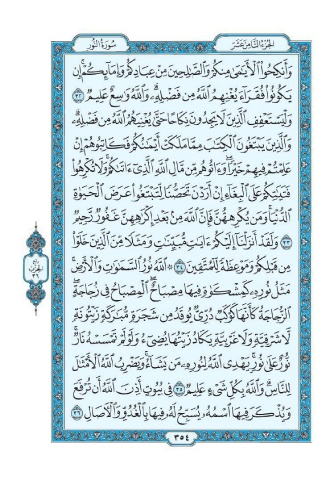 الجزء الثامن عشر
سورة النور
وَأَنكِحُوا۟ ٱلْأَيَـٰمَىٰ مِنكُمْ وَٱلصَّـٰلِحِينَ مِنْ عِبَادِكُمْ وَإِمَآئِكُمْ إِن
يَكُونُوا۟ فُقَرَآءَ يُغْنِهِمُ ٱللَّهُ مِن فَضْلِهِۦ وَٱللَّهُ وَٰسِعٌ عَلِيمٌ ٣٢
وَلْيَسْتَعْفِفِ ٱلَّذِينَ لَا يَجِدُونَ نِكَاحًا حَتَّىٰ يُغْنِيَهُمُ ٱللَّهُ مِن فَضْلِهِۦ
وَٱلَّذِينَ يَبْتَغُونَ ٱلْكِتَـٰبَ مِمَّا مَلَكَتْ أَيْمَـٰنُكُمْ فَكَاتِبُوهُمْ إِنْ
عَلِمْتُمْ فِيهِمْ خَيْرًا وَءَاتُوهُم مِّن مَّالِ ٱللَّهِ ٱلَّذِىٓ ءَاتَىٰكُمْ وَلَا تُكْرِهُوا۟
فَتَيَـٰتِكُمْ عَلَى ٱلْبِغَآءِ إِنْ أَرَدْنَ تَحَصُّنًا لِّتَبْتَغُوا۟ عَرَضَ ٱلْحَيَوٰةِ
ٱلدُّنْيَا وَمَن يُكْرِههُّنَّ فَإِنَّ ٱللَّهَ مِنۢ بَعْدِ إِكْرَٰهِهِنَّ غَفُورٌ رَّحِيمٌ
٣٣ وَلَقَدْ أَنزَلْنَآ إِلَيْكُمْ ءَايَـٰتٍ مُّبَيِّنَـٰتٍ وَمَثَلًا مِّنَ ٱلَّذِينَ خَلَوْا۟
مِن قَبْلِكُمْ وَمَوْعِظَةً لِّلْمُتَّقِينَ ٣٤ ۞ ٱللَّهُ نُورُ ٱلسَّمَـٰوَٰتِ وَٱلْأَرْضِ
مَثَلُ نُورِهِۦ كَمِشْكَوٰةٍ فِيهَا مِصْبَاحٌ ٱلْمِصْبَاحُ فِى زُجَاجَةٍ
ٱلزُّجَاجَةُ كَأَنَّهَا كَوْكَبٌ دُرِّىٌّ يُوقَدُ مِن شَجَرَةٍ مُّبَـٰرَكَةٍ زَيْتُونَةٍ
لَّا شَرْقِيَّةٍ وَلَا غَرْبِيَّةٍ يَكَادُ زَيْتُهَا يُضِىٓءُ وَلَوْ لَمْ تَمْسَسْهُ نَارٌ
نُّورٌ عَلَىٰ نُورٍ يَهْدِى ٱللَّهُ لِنُورِهِۦ مَن يَشَآءُ وَيَضْرِبُ ٱللَّهُ ٱلْأَمْثَـٰلَ
لِلنَّاسِ وَٱللَّهُ بِكُلِّ شَىْءٍ عَلِيمٌ ٣٥ فِى بُيُوتٍ أَذِنَ ٱللَّهُ أَن تُرْفَعَ
وَيُذْكَرَ فِيهَا ٱسْمُهُۥ يُسَبِّحُ لَهُۥ فِيهَا بِٱلْغُدُوِّ وَٱلْـَٔاصَالِ ٣٦
٣٥٤